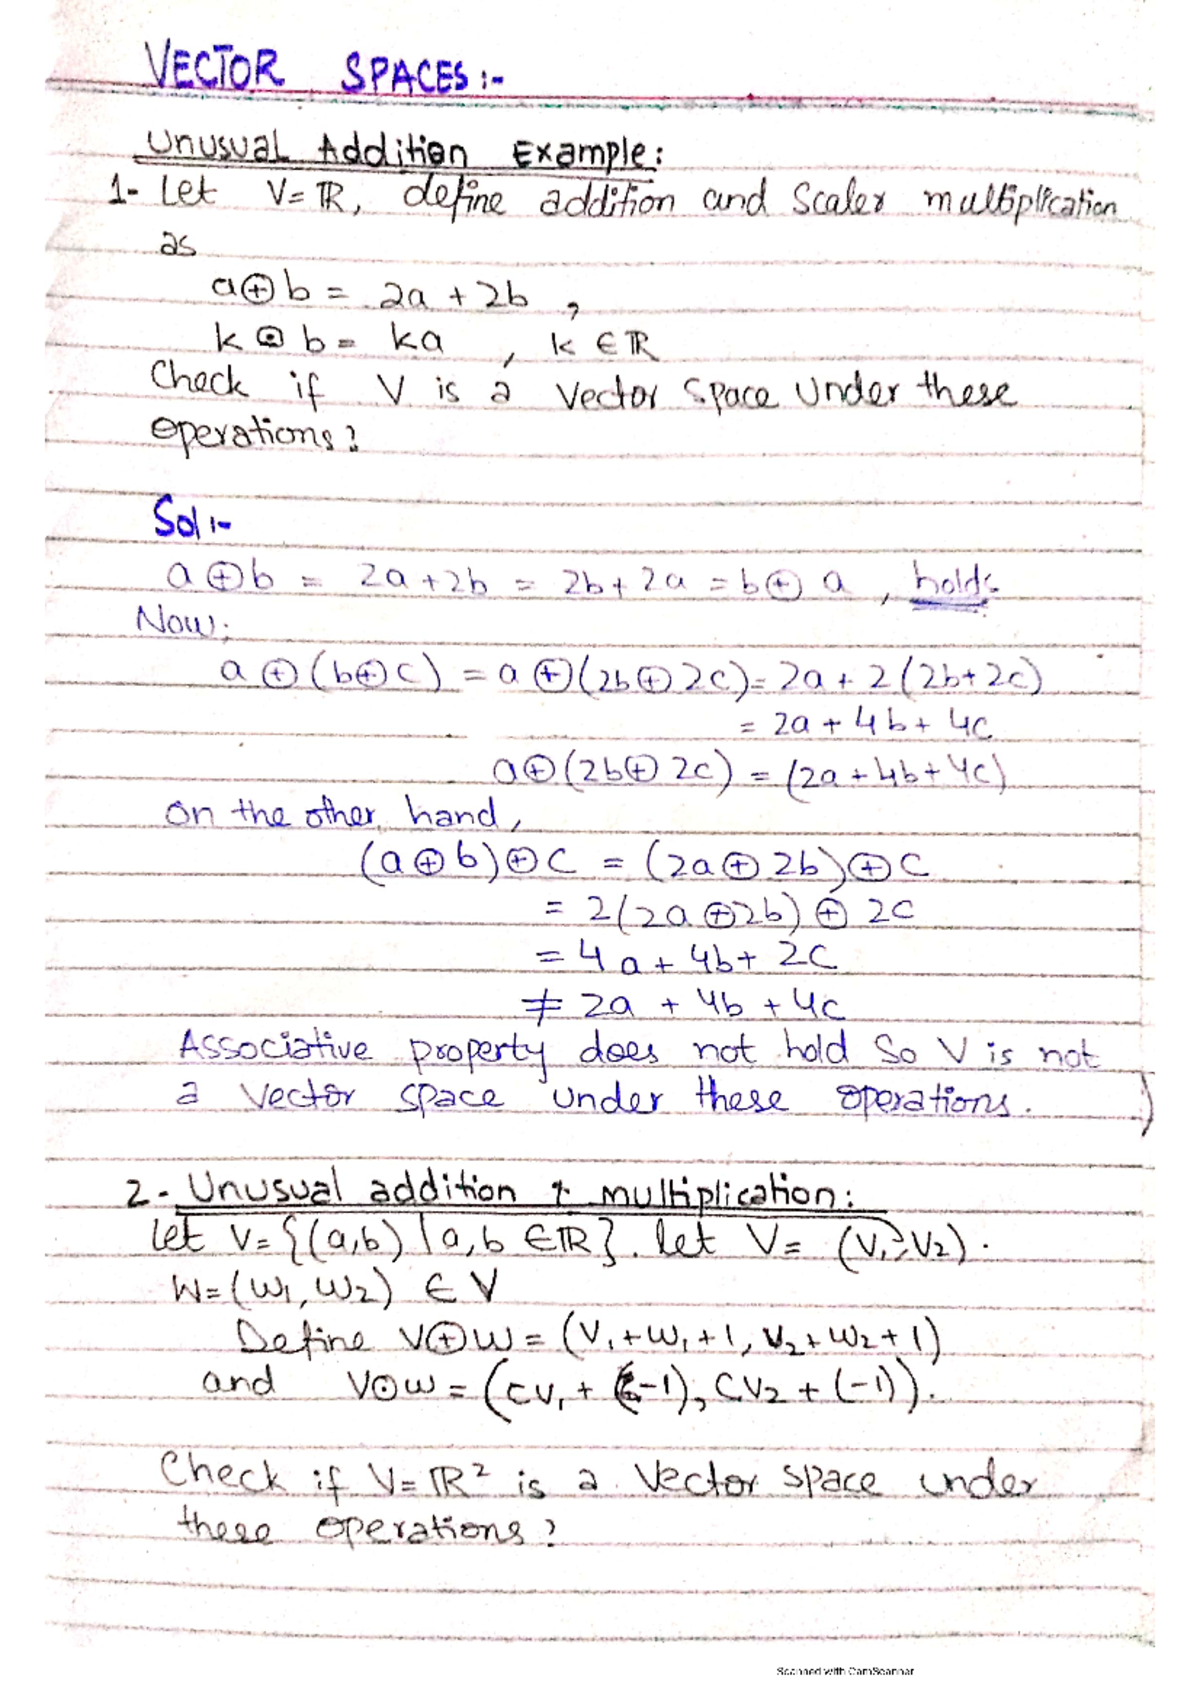 VECTOR SPACES:-
Unusual Addition Example:
1- Let V=ℝ, define addition and Scaler multiplication
as
a⊕b = 2a + 2b ,
k⊙b = ka , k ∈ ℝ
Check if V is a Vector Space Under these
operations?
Sol:-
a⊕b = 2a+2b = 2b+2a = b⊕a , holds
Now;
a⊕(b⊕c) = a⊕(2b⊕2c) = 2a + 2(2b+2c)
= 2a + 4b + 4c
a⊕(2b⊕2c) = (2a+4b+4c)
on the other hand,
(a⊕b)⊕c = (2a⊕2b)⊕c
= 2(2a⊕2b)⊕2c
= 4a + 4b + 2c
≠ 2a + 4b + 4c
Associative property does not hold So V is not
a Vector space under these operations.
2- Unusual addition & multiplication:
Let V={(a,b) | a,b ∈ℝ}. let V= (V₁, V₂).
W=(W₁, W₂) ∈ V
Define V⊕W = (V₁+W₁+1, V₂+W₂+1)
and V⊙W = (CV₁ + (-1), CV₂ + (-1)).
Check if V=ℝ² is a Vector space under
these operations?
Scanned with CamScanner